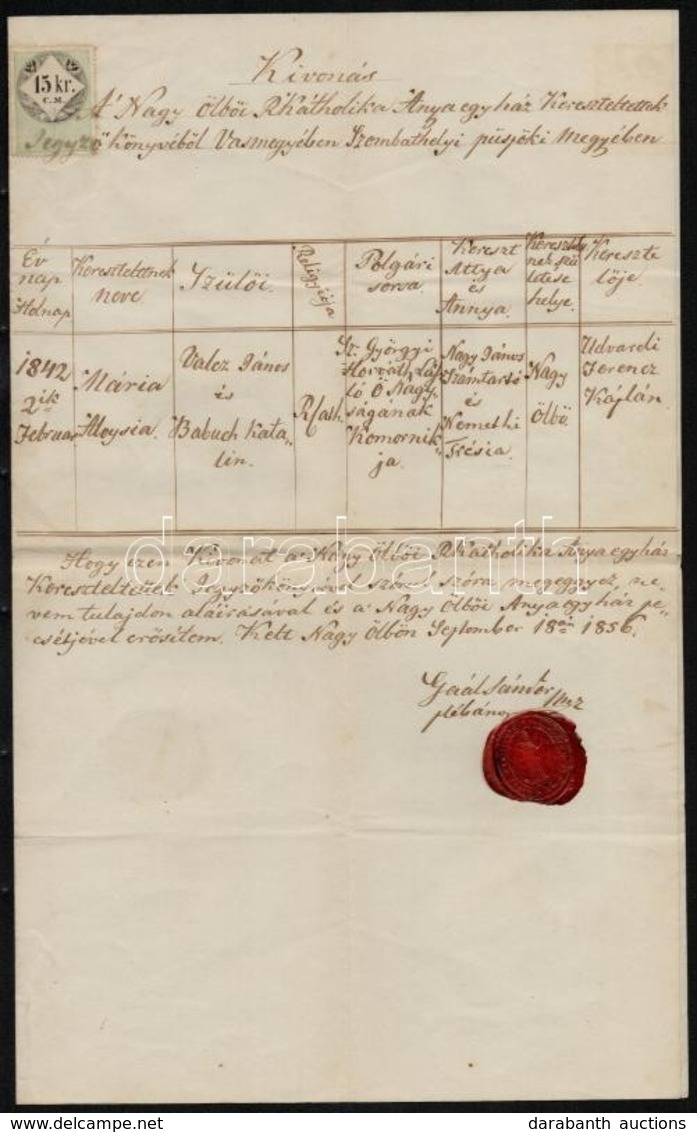 Kivonás
15 kr.
C.M.
A' Nagy Ölböi R'Kátholika Anyaegyház Kereszteltettek
Jegyzőkönyvéböl Vasmegyében Szombathelyi püspöki Megyében
Év
nap
Holnap
Kereszteltetnek
neve.
Szülöi.
Religyiója
Polgári
sorsa.
Kereszt
Attya
és
Annya.
helye.
Kereszte
löje.
1842
2ik
Februar
Mária
Aloysia.
Valcz János
és
Babuch Kata-
lin.
R/cath.
Sz. Györgyi
Horváth Lász
ló Ő Nagy-
ságának
Komornik-
ja.
Nagy János
Számtartó
és
Nemethi
Trésia.
Nagy
Ölbö.
Udvardi
Ferencz
Káplán.
Hogy ezen Kivonat a' Nagy Ölböi R'Katholika Anyaegyház
Kereszteltettek Jegyzökönyvével szóról szóra megegyez, ne-
vem tulajdon aláirásával és a' Nagy Ölböi Anyaegyház pe-
csétjével erösitem. Kelt Nagy Ölbön September 18án 1856.
Gaál Sándor
plébános
darabanth
www.darabanth.com
darabanth auctions